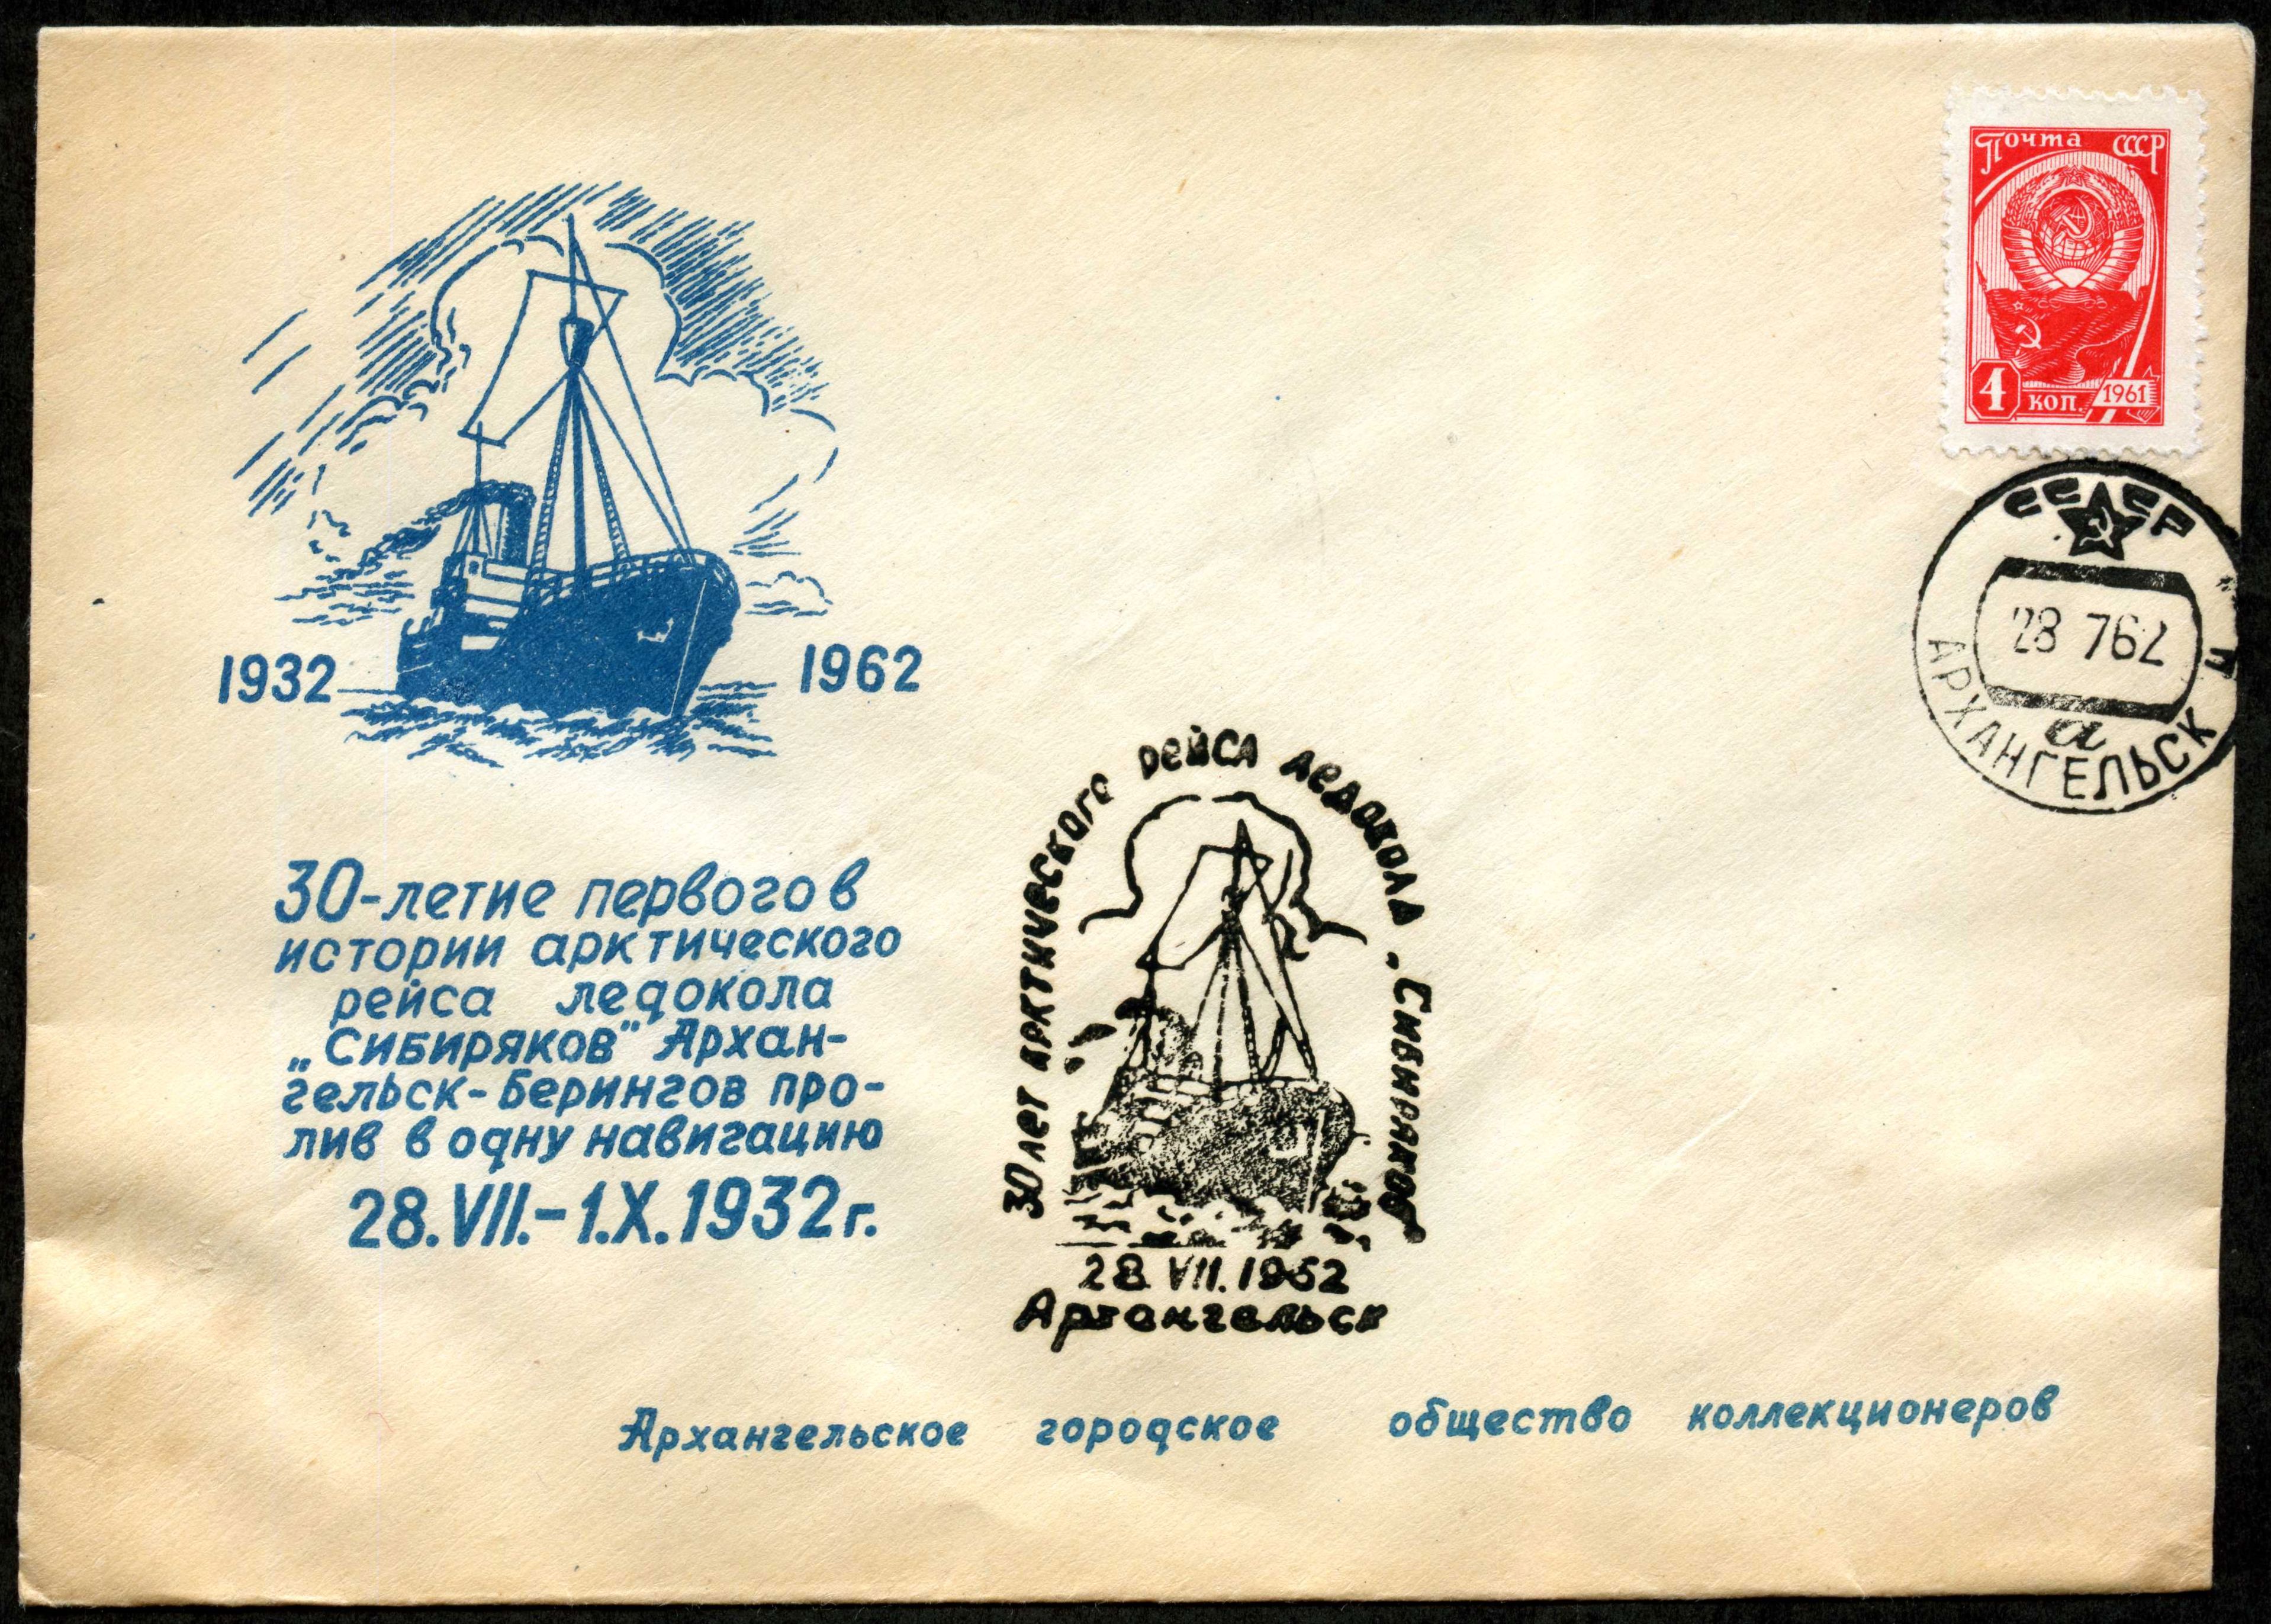 Почта СССР
4 коп. 1961
СССР
28 7 62
а
АРХАНГЕЛЬСК
1932
1962
30-летие первого в
истории арктического
рейса ледокола
„Сибиряков" Архан-
гельск-Берингов про-
лив в одну навигацию
28.VII.-1.X.1932г.
30 лет арктического рейса ледокола „Сибиряков"
28.VII.1962
Архангельск
Архангельское городское общество коллекционеров